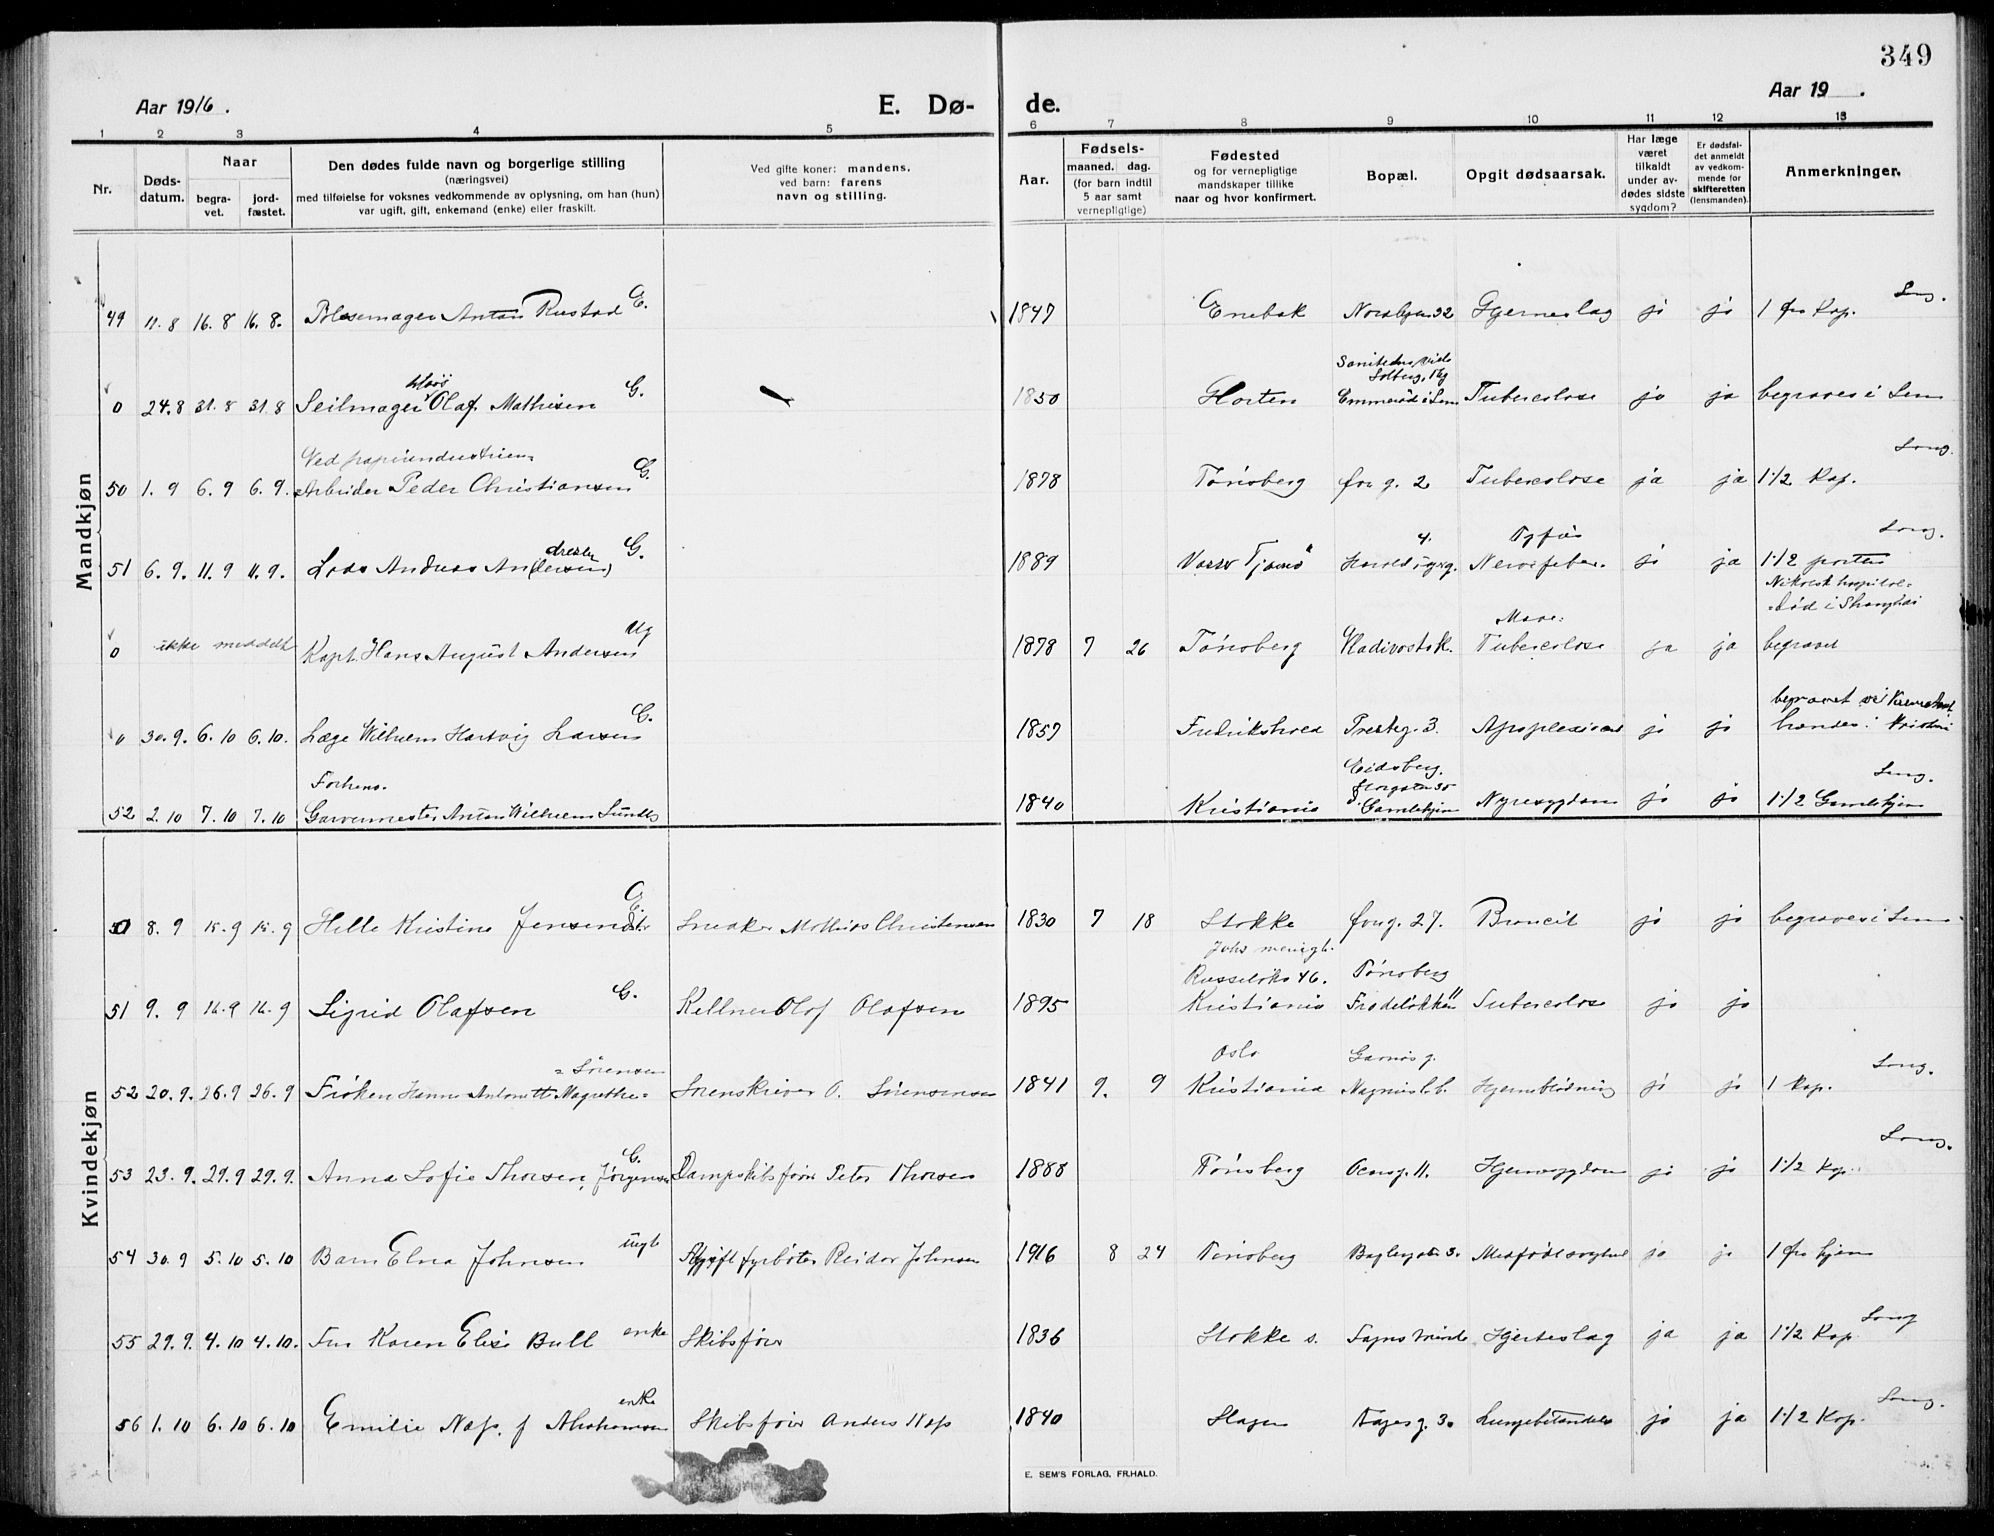 349
Aar 1916.
E. Dø-
de.
Aar 19 .
1 2 3 4 5 6 7 8 9 10 11 12 13
Nr.
Døds-
datum.
Naar
begra-
vet.
jord-
fæstet.
Den dødes fulde navn og borgerlige stilling
(næringsvei)
med tilføielse for voksnes vedkommende av oplysning, om han (hun)
var ugift, gift, enkemand (enke) eller fraskilt.
Ved gifte koner: mandens.
ved barn: farens
navn og stilling.
Aar.
Fødsels-
maaned. dag.
(for barn indtil
5 aar samt
vernepligtige)
Fødested
og for vernepligtige
mandskaper tillike
naar og hvor konfirmert.
Bopæl.
Opgit dødsaarsak.
Har læge
været
tilkaldt
under av-
dødes sidste
sygdom?
Er dødsfal-
det anmeldt
av vedkom-
mende for
skifteretten
(lensmanden).
Anmerkninger.
Mandkjøn
49 11.8 16.8 16.8. Pølsemager Anton Rustad G. 1847 Enebak Nordbyen 32 Hjerneslag ja ja 1 fra Kap.
0 24.8 31.8 31.8 Seilmager Olaf Mathisen G. 1850 Horten Solberg, Emmerød i Sem Tuberculose ja ja begraves i Sem
Ved papirindustrien
50 1.9 6.9 6.9. Arbeider Peder Christiansen G. 1878 Tønsberg g. 2 Tuberculose ja ja 1 1/2 Kap.
51 6.9. 11.9 11.9. Lods Andreas Andersen G. 1889 Tjømø 4. Tyfus Nervefeber. ja ja 1 1/2 porten
død i Shanghai
0 ikke meddelt Kapt. Hans August Andersen Ug 1878 7 26 Tønsberg Vladivostok. Mave: Tuberculose ja ja begravet
0 30.9. 6.10 6.10. Læge Wilhelm Hartvig Larsen G. 1857 Fredrikshald Presteg. 3. ja ja begravet
Forhens.
52 2.10 7.10 7.10 Garvermester Anton Wilhelm 1840 Kristiania Eidsberg. Gamlehjem Nyresygdom ja ja 1 1/2 Gamlehjem
Kvindekjøn
50 8.9 15.9 15.9 Helle Kristine Jensen G. Snekker Mathias Christensen 1830 7 18 Stokke g. 27. Broncit ja ja begraves i Sem
51 9.9 14.9 14.9 Sigrid Olafsen G. Kellner Olof Olafsen 1895 Kristiania Tønsberg Tuberculose ja ja
52 20.9. 26.9 26.9 Frøken Hanna Antonette Magrethe = Sørensen Sorenskriver O. Sørensen 1841 9. 9 Oslo Kristiania Hjerneblødning ja ja 1 Kap.
53 23.9. 29.9 29.9. Anna Sofie Thorsen, Jørgensen G. Dampskibsfører Peter Thorsen 1888 Tønsberg g. 11. ja ja 1 1/2 Kap.
54 30.9 5.10 5.10 Barn Elna Johnsen Fyrbøter Reidar Johnsen 1916 8 24 Tønsberg Baglergaten 3. Medfødt svaghed ja ja 1 fra hjem
55 29.9. 4.10 4.10. Fru Karen Elise Bull enke Skibsfører 1836 Stokke s. Hjerteslag ja ja 1 1/2 Kap.
56 1.10 6.10 6.10 Emilie Næss, f Abrahamsen enke Skibsfører Anders Næss 1840 Slagen g. 3. Lungebetændelse ja ja 1 1/2 Kap.
E. SEM'S FORLAG, FR.HALD.